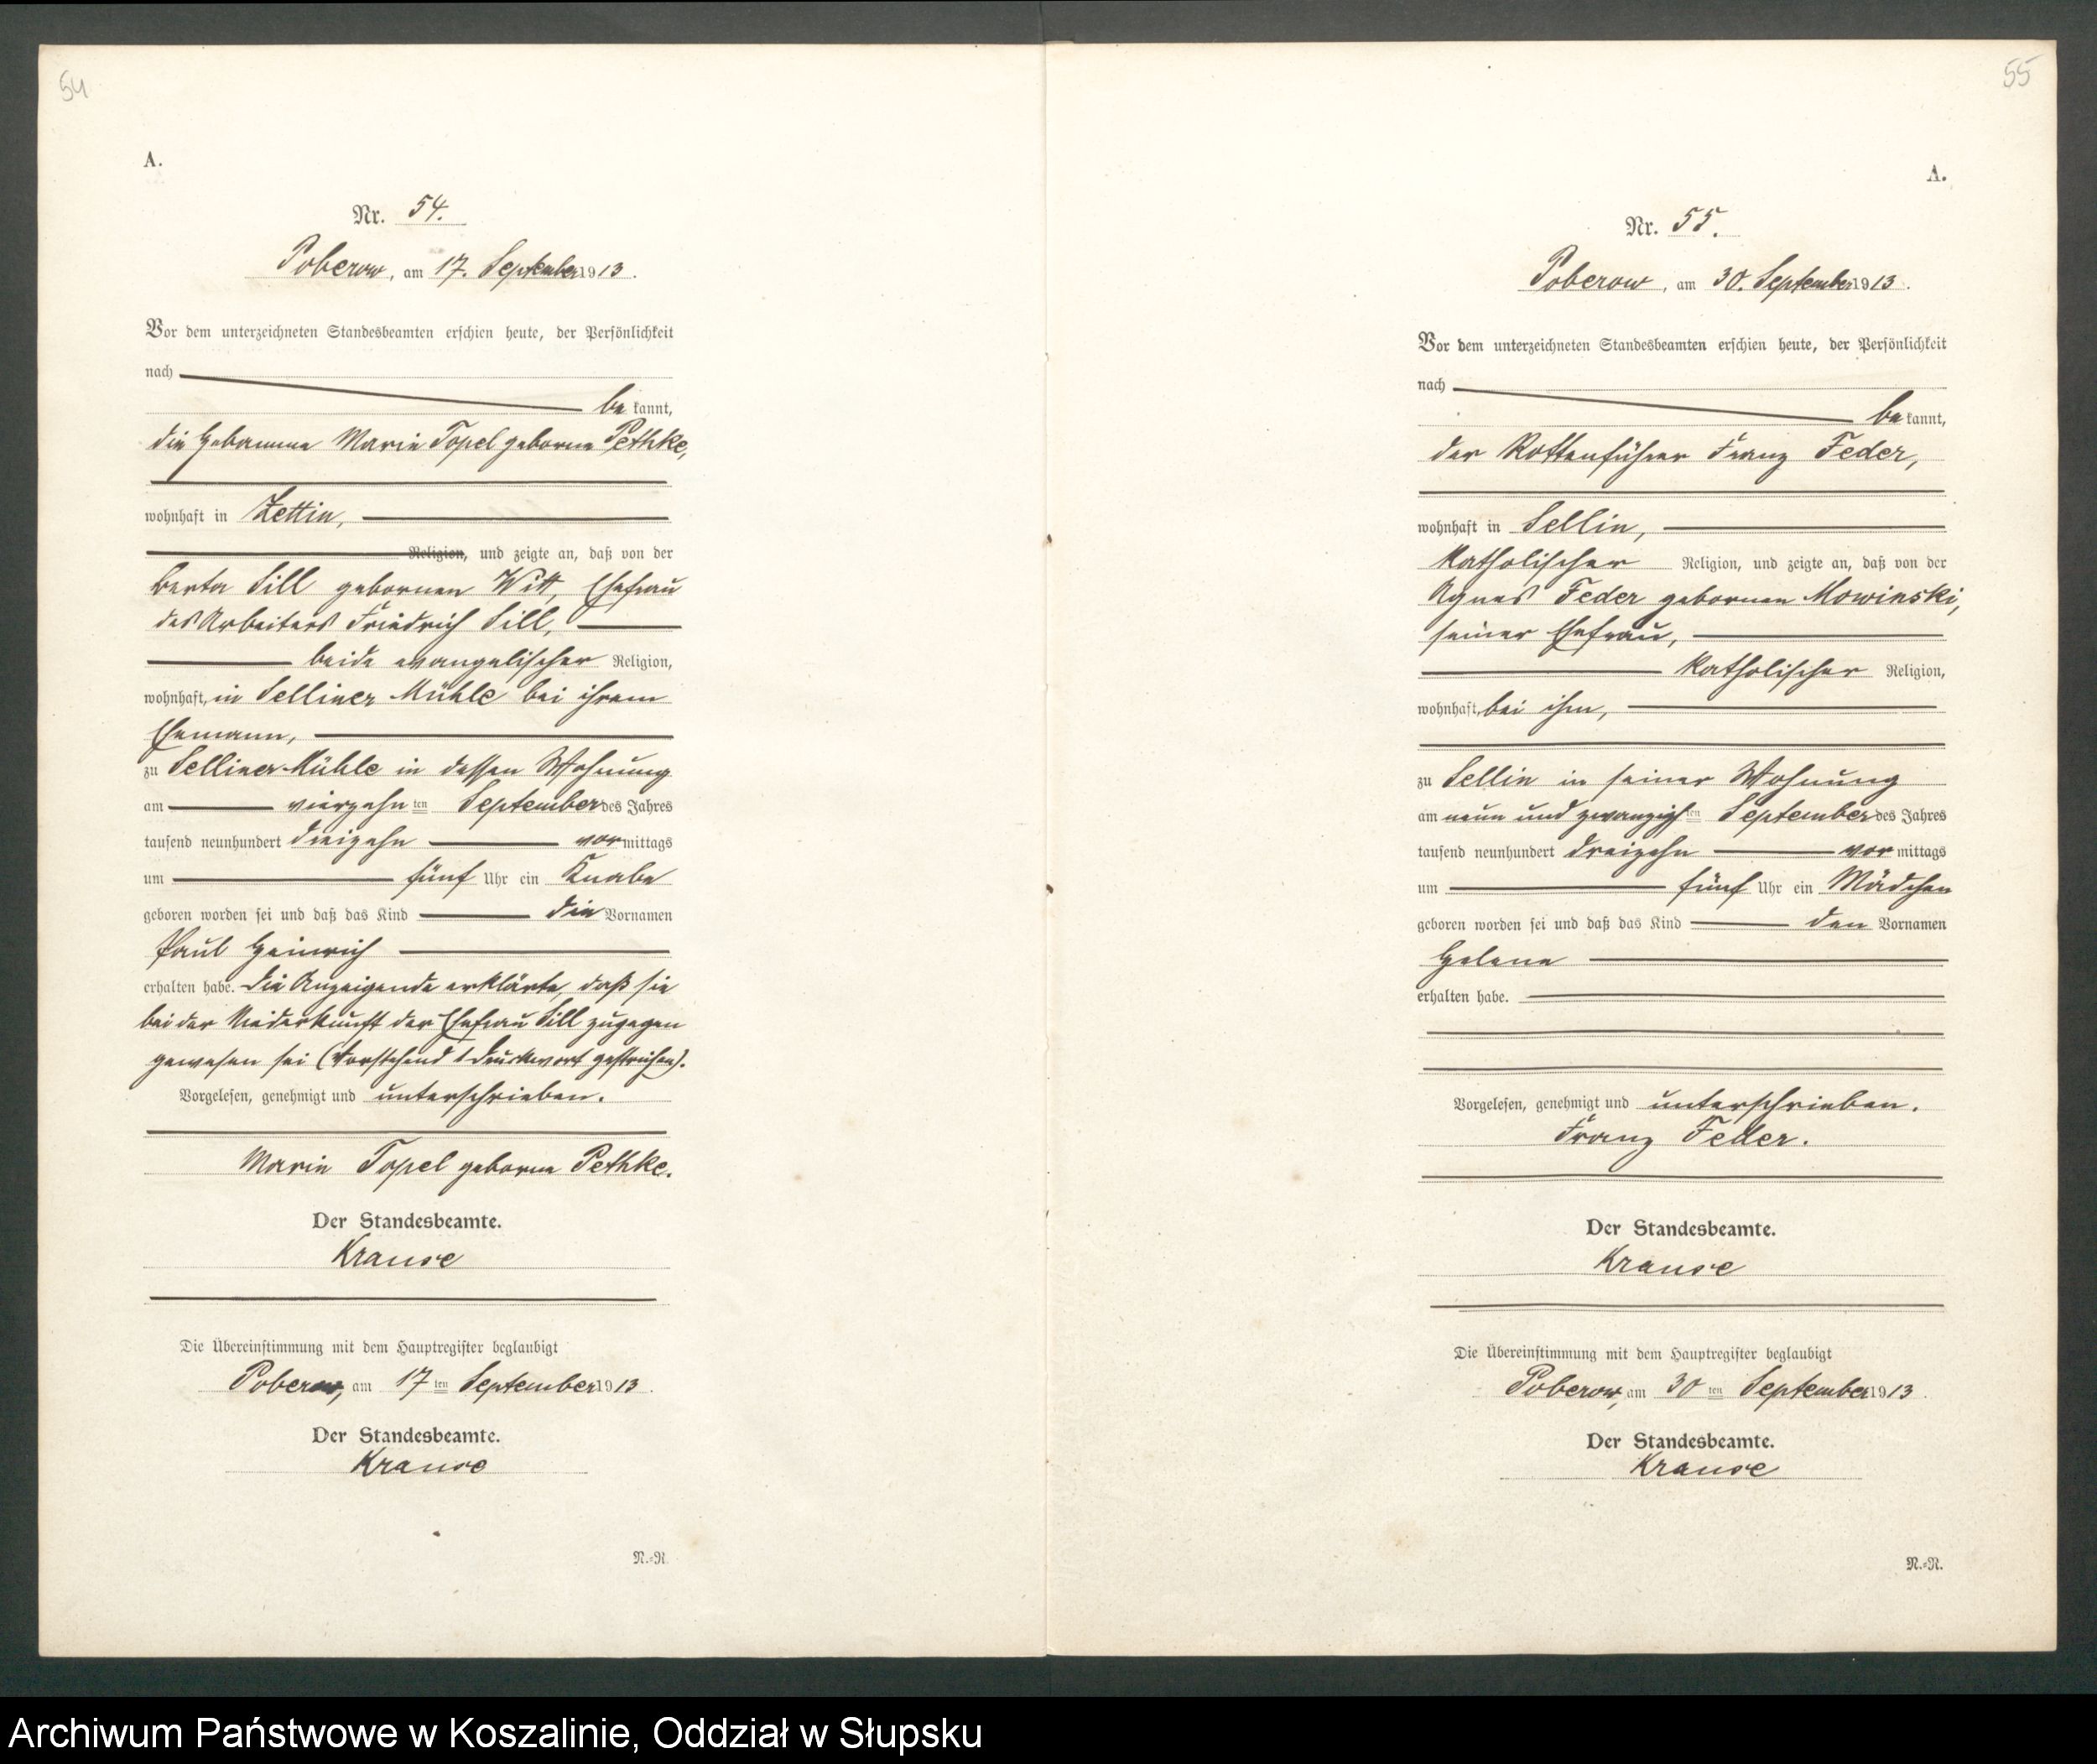 54
A.
Nr. 54.
Poberow, am 17. September 1913.
Vor dem unterzeichneten Standesbeamten erschien heute, der Persönlichkeit
nach
be kannt,
die Hebamme Marie Topel geborne Pethke,
wohnhaft in Zettin,
Religion, und zeigte an, daß von der
Berta Sill gebornen Witt, Ehefrau
des Arbeiters Friedrich Sill,
beide evangelischer Religion,
wohnhaft, in Selliner Mühle bei ihrem
Ehemann,
zu Selliner-Mühle in dessen Wohnung
am vierzehn ten September des Jahres
tausend neunhundert dreizehn vor mittags
um fünf Uhr ein Knabe
geboren worden sei und daß das Kind die Vornamen
Paul Heinrich
erhalten habe. Die Anzeigende erklärte, daß sie
bei der Niederkunft der Ehefrau Sill zugegen
gewesen sei (Vorstehend 1 Druckwort gestrichen).
Vorgelesen, genehmigt und unterschrieben.
Marie Topel geborne Pethke.
Der Standesbeamte.
Krause
Die Übereinstimmung mit dem Hauptregister beglaubigt
Poberow, am 17 ten September 1913.
Der Standesbeamte.
Krause
N.=R.
55
A.
Nr. 55.
Poberow, am 30. September 1913.
Vor dem unterzeichneten Standesbeamten erschien heute, der Persönlichkeit
nach
be kannt,
der Rottenführer Franz Feder,
wohnhaft in Sellin,
katholischer Religion, und zeigte an, daß von der
Agnes Feder gebornen Mowinski,
seiner Ehefrau,
katholischer Religion,
wohnhaft, bei ihm,
zu Sellin in seiner Wohnung
am neun und zwanzigs ten September des Jahres
tausend neunhundert dreizehn vor mittags
um fünf Uhr ein Mädchen
geboren worden sei und daß das Kind den Vornamen
Helene
erhalten habe.
Vorgelesen, genehmigt und unterschrieben.
Franz Feder.
Der Standesbeamte.
Krause
Die Übereinstimmung mit dem Hauptregister beglaubigt
Poberow, am 30 ten September 1913.
Der Standesbeamte.
Krause
N.=R.
Archiwum Państwowe w Koszalinie, Oddział w Słupsku